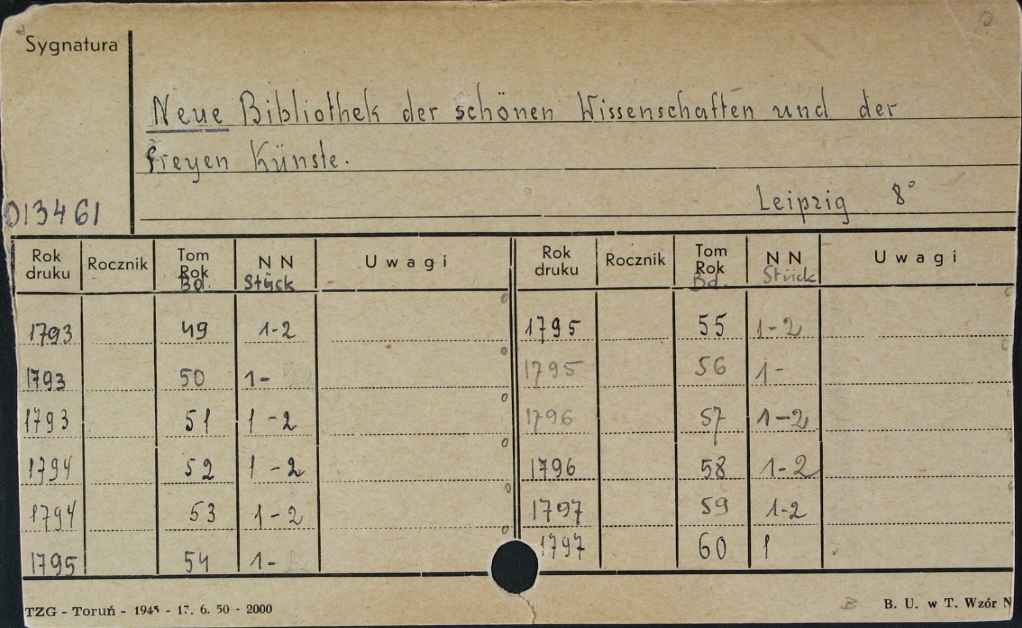 Sygnatura
Neue Bibliothek der schönen Wissenschaften und der
freyen Künste.
013461
Leipzig 8°
Rok druku Rocznik Tom Rok Bd. N N Stück Uwagi Rok druku Rocznik Tom Rok Bd. N N Stück Uwagi
1793 49 1-2 1795 55 1-2
1793 50 1- 1795 56 1-
1793 51 1-2 1796 57 1-2
1794 52 1-2 1796 58 1-2
1794 53 1-2 1797 59 1-2
1795 54 1- 1797 60 1
TZG - Toruń - 1945 - 17. 6. 50 - 2000 B. U. w T. Wzór N